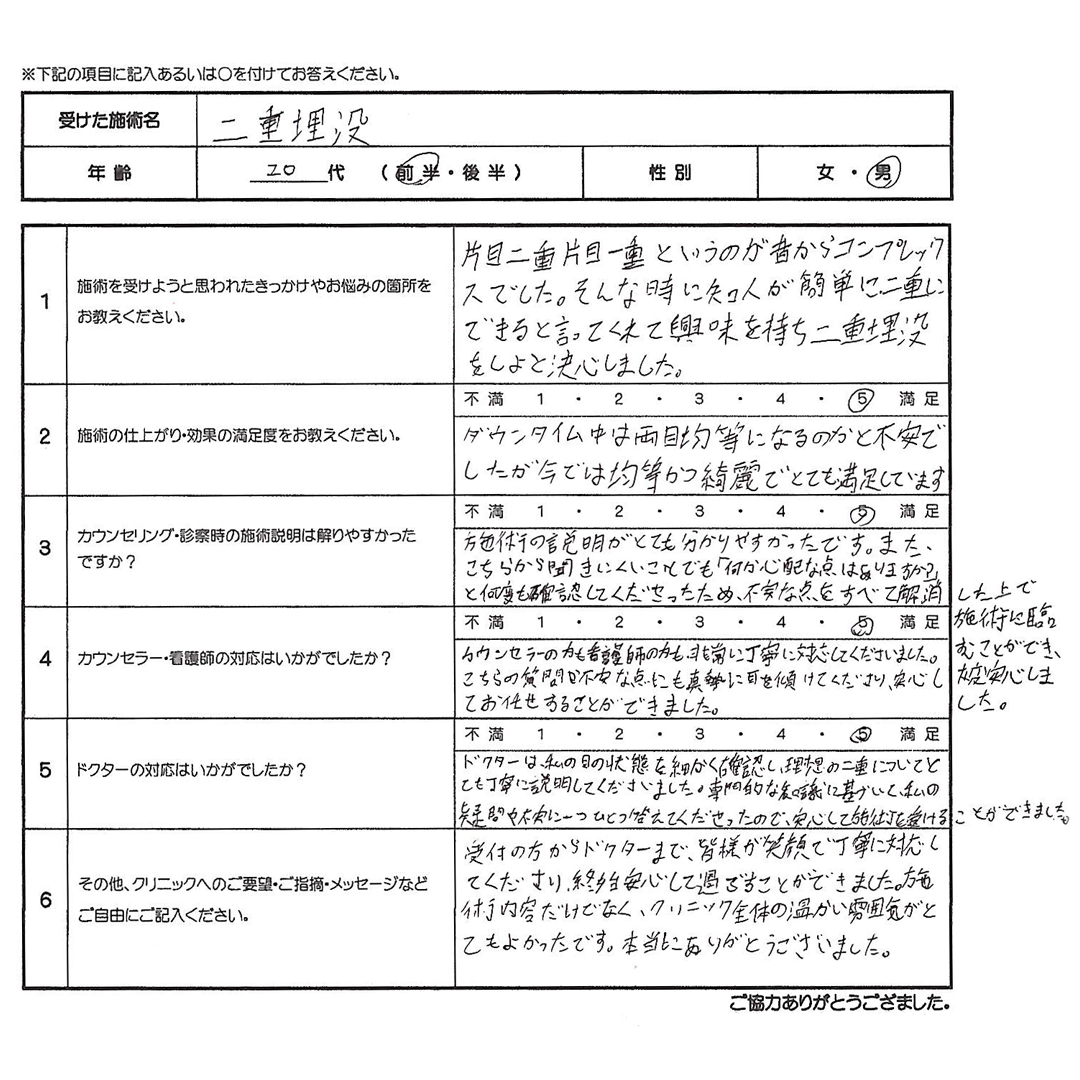 ※下記の項目に記入あるいは〇を付けてお答えください。
受けた施術名
二重埋没
年齢
20 代 （前半・後半）
性別
女・男
1
施術を受けようと思われたきっかけやお悩みの箇所を
お教えください。
片目二重片目一重というのが昔からコンプレック
スでした。そんな時に知人が簡単に二重に
できると言ってくれて興味を持ち二重埋没
をしよと決心しました。
2
施術の仕上がり・効果の満足度をお教えください。
不満 1 ・ 2 ・ 3 ・ 4 ・ 5 満足
ダウンタイム中は両目均等になるのかと不安で
したが今では均等かつ綺麗でとても満足しています
3
カウンセリング・診察時の施術説明は解りやすかった
ですか？
不満 1 ・ 2 ・ 3 ・ 4 ・ 5 満足
施術の説明がとても分かりやすかったです。また、
こちらから聞きにくいことでも「何か心配な点はありますか?」
と何度も確認してくださったため、不安な点をすべて解消
した上で
施術に臨
むことができ、
大変安心しま
した。
4
カウンセラー・看護師の対応はいかがでしたか？
不満 1 ・ 2 ・ 3 ・ 4 ・ 5 満足
カウンセラーの方も看護師の方も非常に丁寧に対応してくださいました。
こちらの質問や不安な点にも真摯に耳を傾けてくださり、安心し
てお任せすることができました。
5
ドクターの対応はいかがでしたか？
不満 1 ・ 2 ・ 3 ・ 4 ・ 5 満足
ドクターは、私の目の状態を細かく確認し、理想の二重についてと
ても丁寧に説明してくださいました。専門的な知識に基づいて、私の
疑問や不安に一つひとつ答えてくださったので、安心して施術を受ける
ことができました。
6
その他、クリニックへのご要望・ご指摘・メッセージなど
ご自由にご記入ください。
受付の方からドクターまで、皆様が笑顔で丁寧に対応し
てくださり、終始安心して過ごすことができました。施
術内容だけでなく、クリニック全体の温かい雰囲気がと
てもよかったです。本当にありがとうございました。
ご協力ありがとうござました。